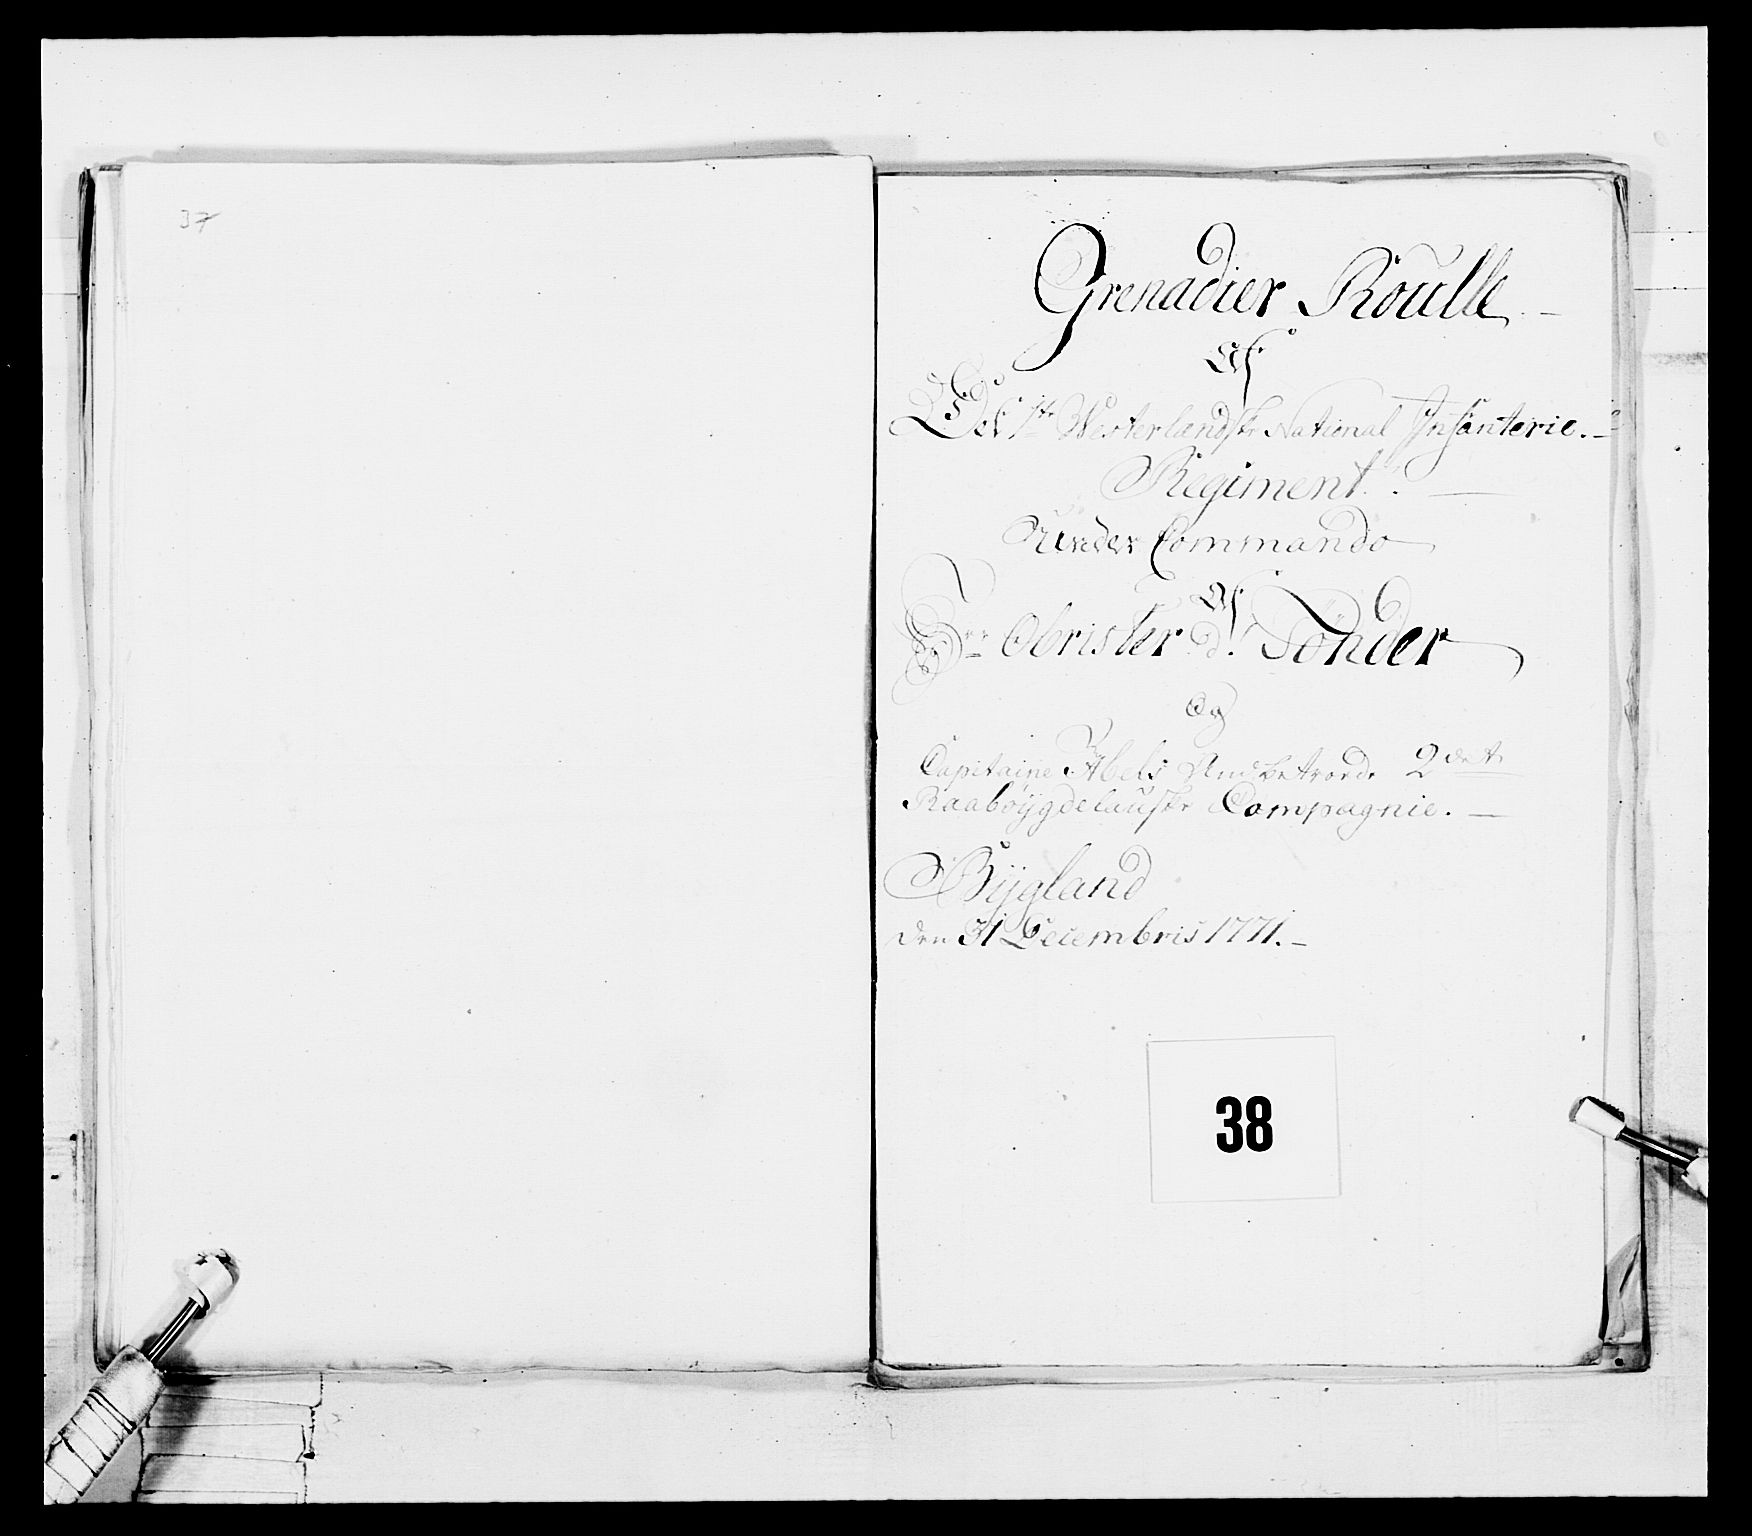 37
Grenadier Roulle. –
Af
Det 1ste Westerlandske National Infanterie. –
Regiment. —
Under Commando
Af
Hrr Obrister d! Tönder
Og
Capitaine Abels Andbetroede 2det
Raabøÿgdelauske Compagnie. —
Bÿgland
den 31 Decembris 1771. –
38